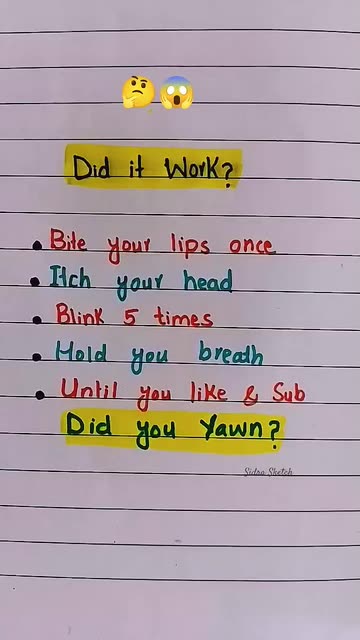 🤔😱
Did it Work?
• Bite your lips once
• Itch your head
• Blink 5 times
• Hold you breath
• Until you like & Sub
Did you Yawn?
Sidra Sketch